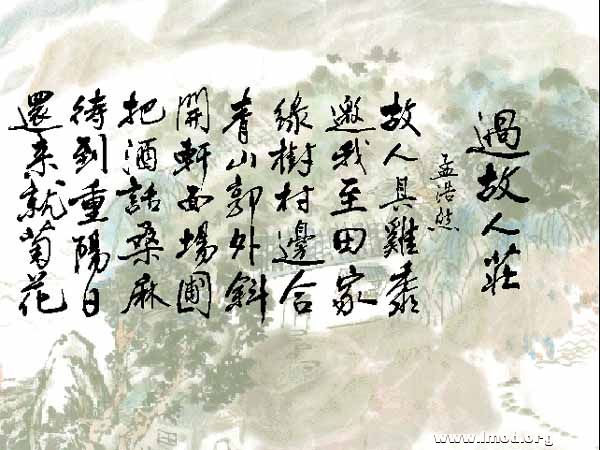 過故人莊
孟浩然
故人具雞黍
邀我至田家
緣樹村邊合
青山郭外斜
開軒面場圃
把酒話桑麻
待到重陽日
還来就菊花
www.lmod.org